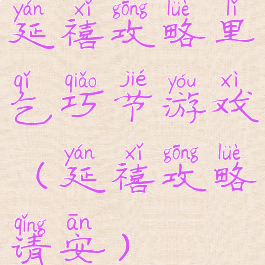 yán xǐ gōng lüè lǐ
延禧攻略里
qǐ qiǎo jié yóu xì
乞巧节游戏
yán xǐ gōng lüè
（延禧攻略
qǐng ān
请安）